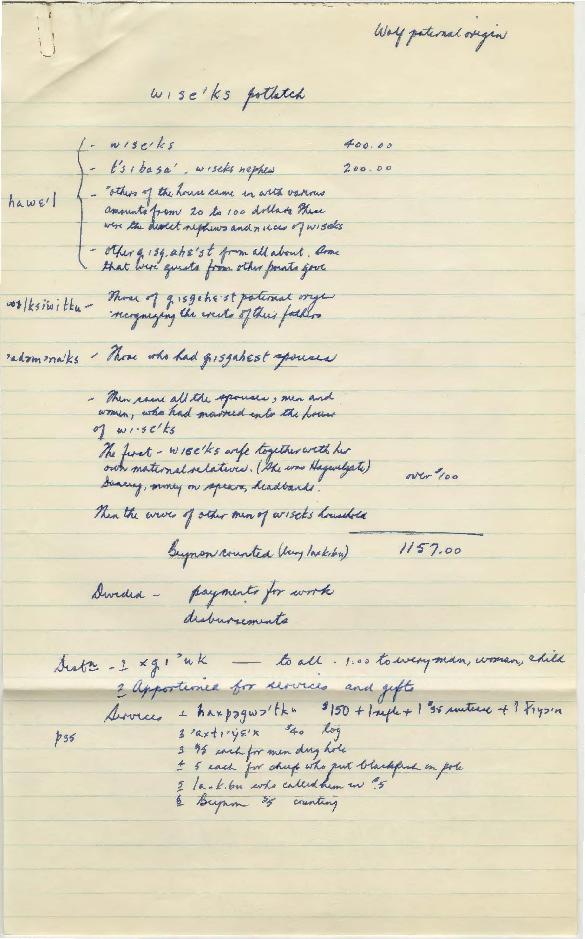 Wolf paternal origin
wise'ks potlatch
- wise'ks 400.00
- t'sibasa', wiseks nephew 200.00
hawe'l
- "others of the house came in with various
amounts from 20 to 100 dollars These
were the direct nephews and nieces of wiseks
- Other gisgahe'st from all about. Some
that were guests from other points gave
- Those of gisgahest paternal origin
recognizing the crests of their fathers
- Those who had gisgahest spouses
- Then came all the spouses, men and
women, who had married into the house
of wise'ks
The first - wise'ks wife together with her
own maternal relatives. (She was Hagwelgate)
Dancing, money on spears, headbands. over $100
Then the wives of other men of wiseks household
Beynon counted (being laxkibu) 1157.00
Divided - payments for work
disbursements
Distn - 1 xgi'uk — to all - 1.00 to every man, woman, child
2 Apportioned for services and gifts
Services 1 haxpagwa'tku $150 + 1 rifle + 1 $35 suitcase + 1
p35
2 $40 log
3 $5 each for men dug hole
4 5 each for chiefs who put blackfish on pole
5 laxkibu who called them in $5
6 Beynon $5 counting